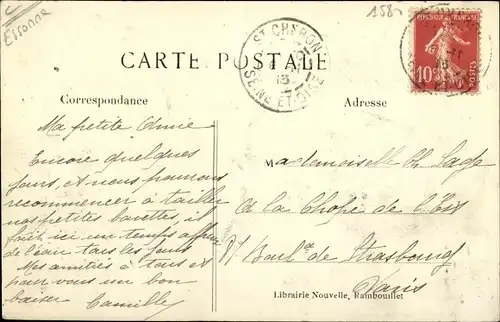 Essonne
158
CARTE POSTALE
ST CHERON
13
SEINE ET OISE
REPUBLIQUE FRANÇAISE
10
POSTES
Correspondance
Adresse
Ma petite Amie
Encore quelques
jours, et nous pourrons
recommencer à tailler
nos petites bavettes, il
fait ici un temps affreux
de l'eau tous les jours
Mes amitiés à tous et
pour vous un bon
baiser Camille
Mademoiselle Ch.
à la Chope de l'Est
Boul. de Strasbourg
Paris
Librairie Nouvelle, Rambouillet